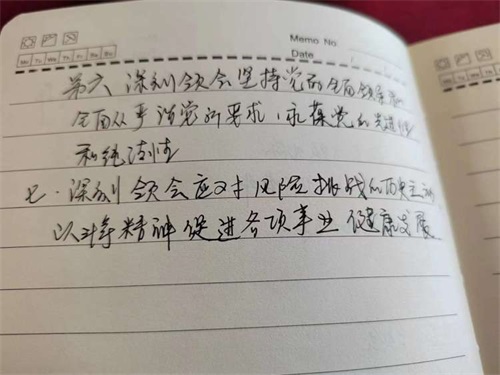 Memo No.
Date
Mo Tu We Th Fr Sa Su
第六 深刻领会坚持党的全面领导和
全面从严治党的要求，永葆党的先进性
和纯洁性
七、深刻领会应对风险挑战的历史主动
以斗争精神促进各项事业健康发展